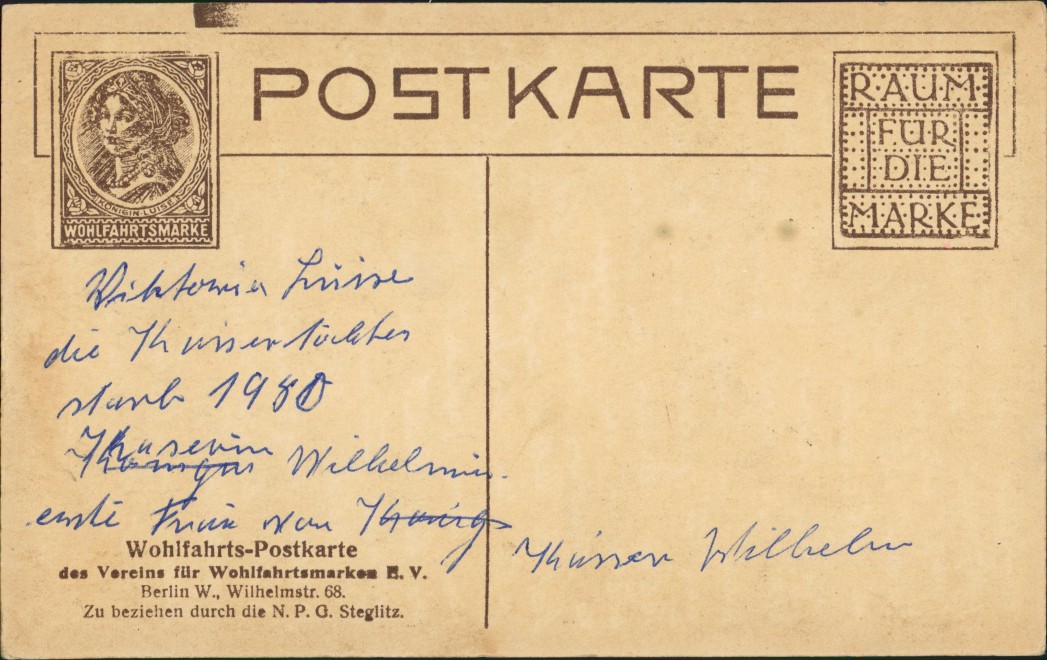 POSTKARTE
KÖNIGIN LUISE
WOHLFAHRTSMARKE
RAUM
FÜR
DIE
MARKE
Viktoria Luise
die Kaisertochter
starb 1980
Kaiserin
Königin Wilhelmin
erste Frau von König
Kaiser Wilhelm
Wohlfahrts-Postkarte
des Vereins für Wohlfahrtsmarken E. V.
Berlin W., Wilhelmstr. 68.
Zu beziehen durch die N. P. G. Steglitz.